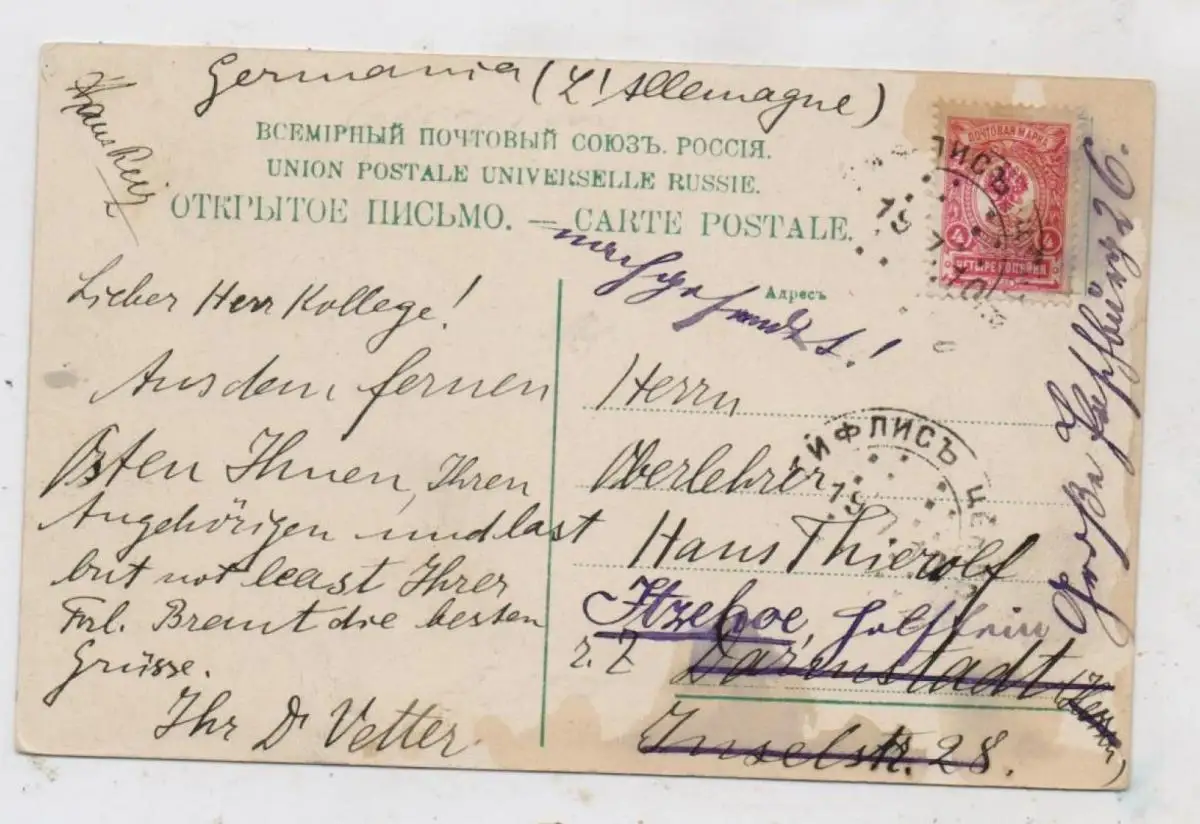 Germania (L'Allemagne)
ВСЕМІРНЫЙ ПОЧТОВЫЙ СОЮЗЪ. РОССІЯ.
UNION POSTALE UNIVERSELLE RUSSIE.
ОТКРЫТОЕ ПИСЬМО. — CARTE POSTALE.
nachgesandt!
Адресъ
ПОЧТОВАЯ МАРКА
4 4
ЧЕТЫРЕ КОПѢЙКИ
Lieber Herr Kollege!
Aus dem fernen
Osten Ihnen, Ihren
Angehörigen und last
but not least Ihrer
Frl. Braut die besten
Grüsse.
Ihr Dr Vetter
Herrn
Oberlehrer
Hans Thierolf
Itzehoe, Holstein
z. Z. Darmstadt
Inselstr. 28.
Große 26.
ТИФЛИСЪ
19